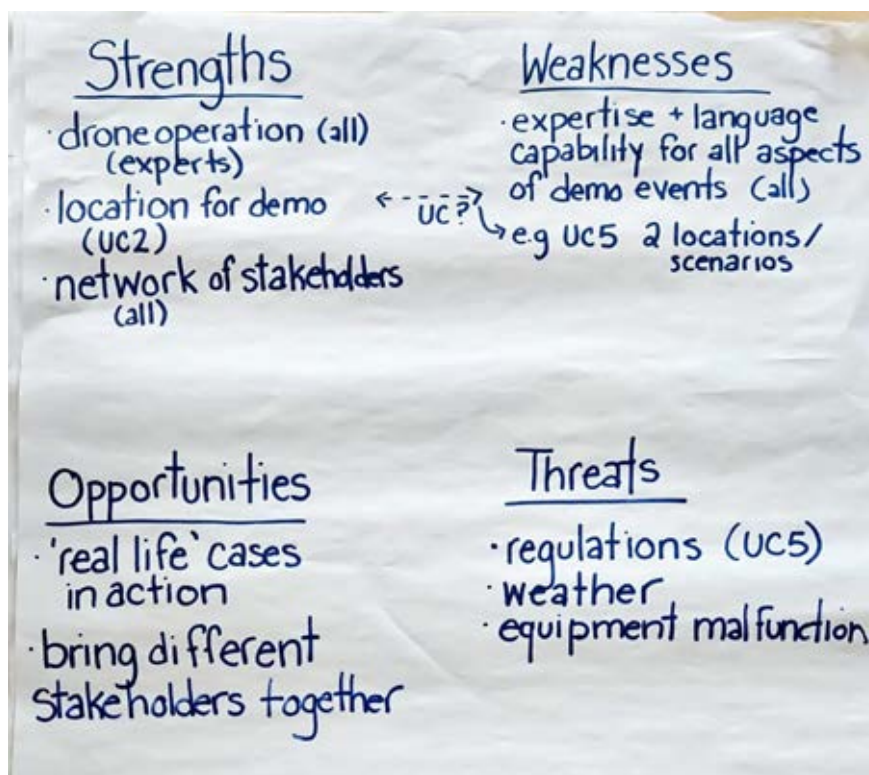 Strengths
· drone operation (all)
(experts)
· location for demo
(UC2)
· network of stakeholders
(all)
UC?
Weaknesses
· expertise + language
capability for all aspects
of demo events (all)
e.g UC5 2 locations/
scenarios
Opportunities
· 'real life' cases
in action
· bring different
stakeholders together
Threats
· regulations (UC5)
· weather
· equipment malfunction